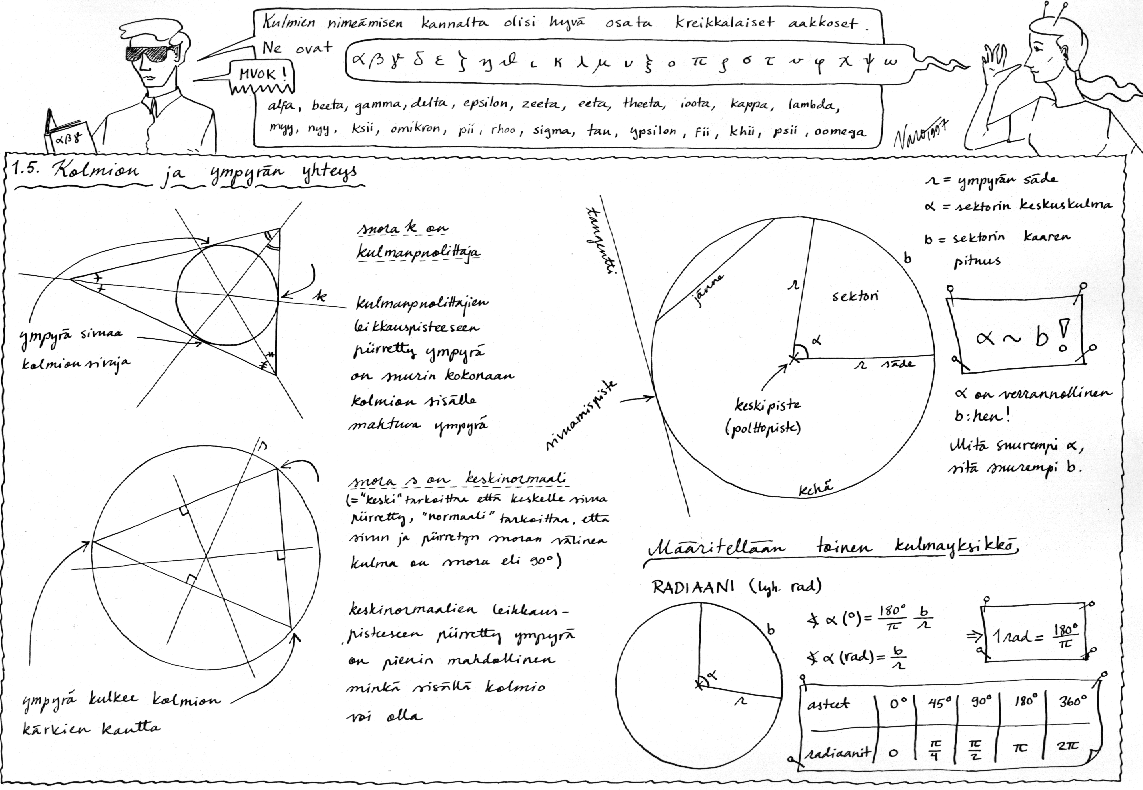 Kulmien nimeämisen kannalta olisi hyvä osata kreikkalaiset aakkoset.
Ne ovat
α β γ δ ε ζ η ϑ ι κ λ μ ν ξ ο π ρ σ τ υ φ χ ψ ω
MUOK!
alfa, beeta, gamma, delta, epsilon, zeeta, eeta, theeta, ioota, kappa, lambda,
myy, nyy, ksii, omikron, pii, rhoo, sigma, tau, ypsilon, fii, khii, psii, oomega
αβγ
1.5. Kolmion ja ympyrän yhteys
suora k on
kulmanpuolittaja
k
kulmanpuolittajien
leikkauspisteeseen
piirretty ympyrä
on suurin kokonaan
kolmion sisälle
mahtuva ympyrä
ympyrä sivuaa
kolmion sivuja
s
suora s on keskinormaali
(="keski" tarkoittaa että keskelle sivua
piirretty, "normaali" tarkoittaa, että
sivun ja piirretyn suoran välinen
kulma on suora eli 90°)
keskinormaalien leikkaus-
pisteeseen piirretty ympyrä
on pienin mahdollinen
minkä sisällä kolmio
voi olla
ympyrä kulkee kolmion
kärkien kautta
tangentti
jänne
r
sektori
b
α
r säde
keskipiste
(polttopiste)
sivuamispiste
kehä
r = ympyrän säde
α = sektorin keskuskulma
b = sektorin kaaren
pituus
α ~ b !
α on verrannollinen
b:hen!
Mitä suurempi α,
sitä suurempi b.
Määritellään toinen kulmayksikkö,
RADIAANI (lyh. rad)
b
α
r
∢ α (°) = 180°/π b/r
∢ α (rad) = b/r
⇒ 1 rad = 180°/π
asteet 0° 45° 90° 180° 360°
radiaanit 0 π/4 π/2 π 2π